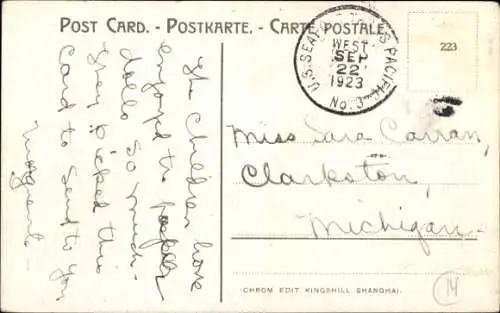 POST CARD. - POSTKARTE. - CARTE POSTALE
U.S. SEAPOST TRANS PACIFIC
WEST
SEP
22
1923
No. 3
223
The children have
enjoyed the paper
dolls so much -
They picked this
card to send to you
Miss Sara Carran,
Clarkston,
Michigan -
CHROM EDIT KINGSHILL SHANGHAI.
14